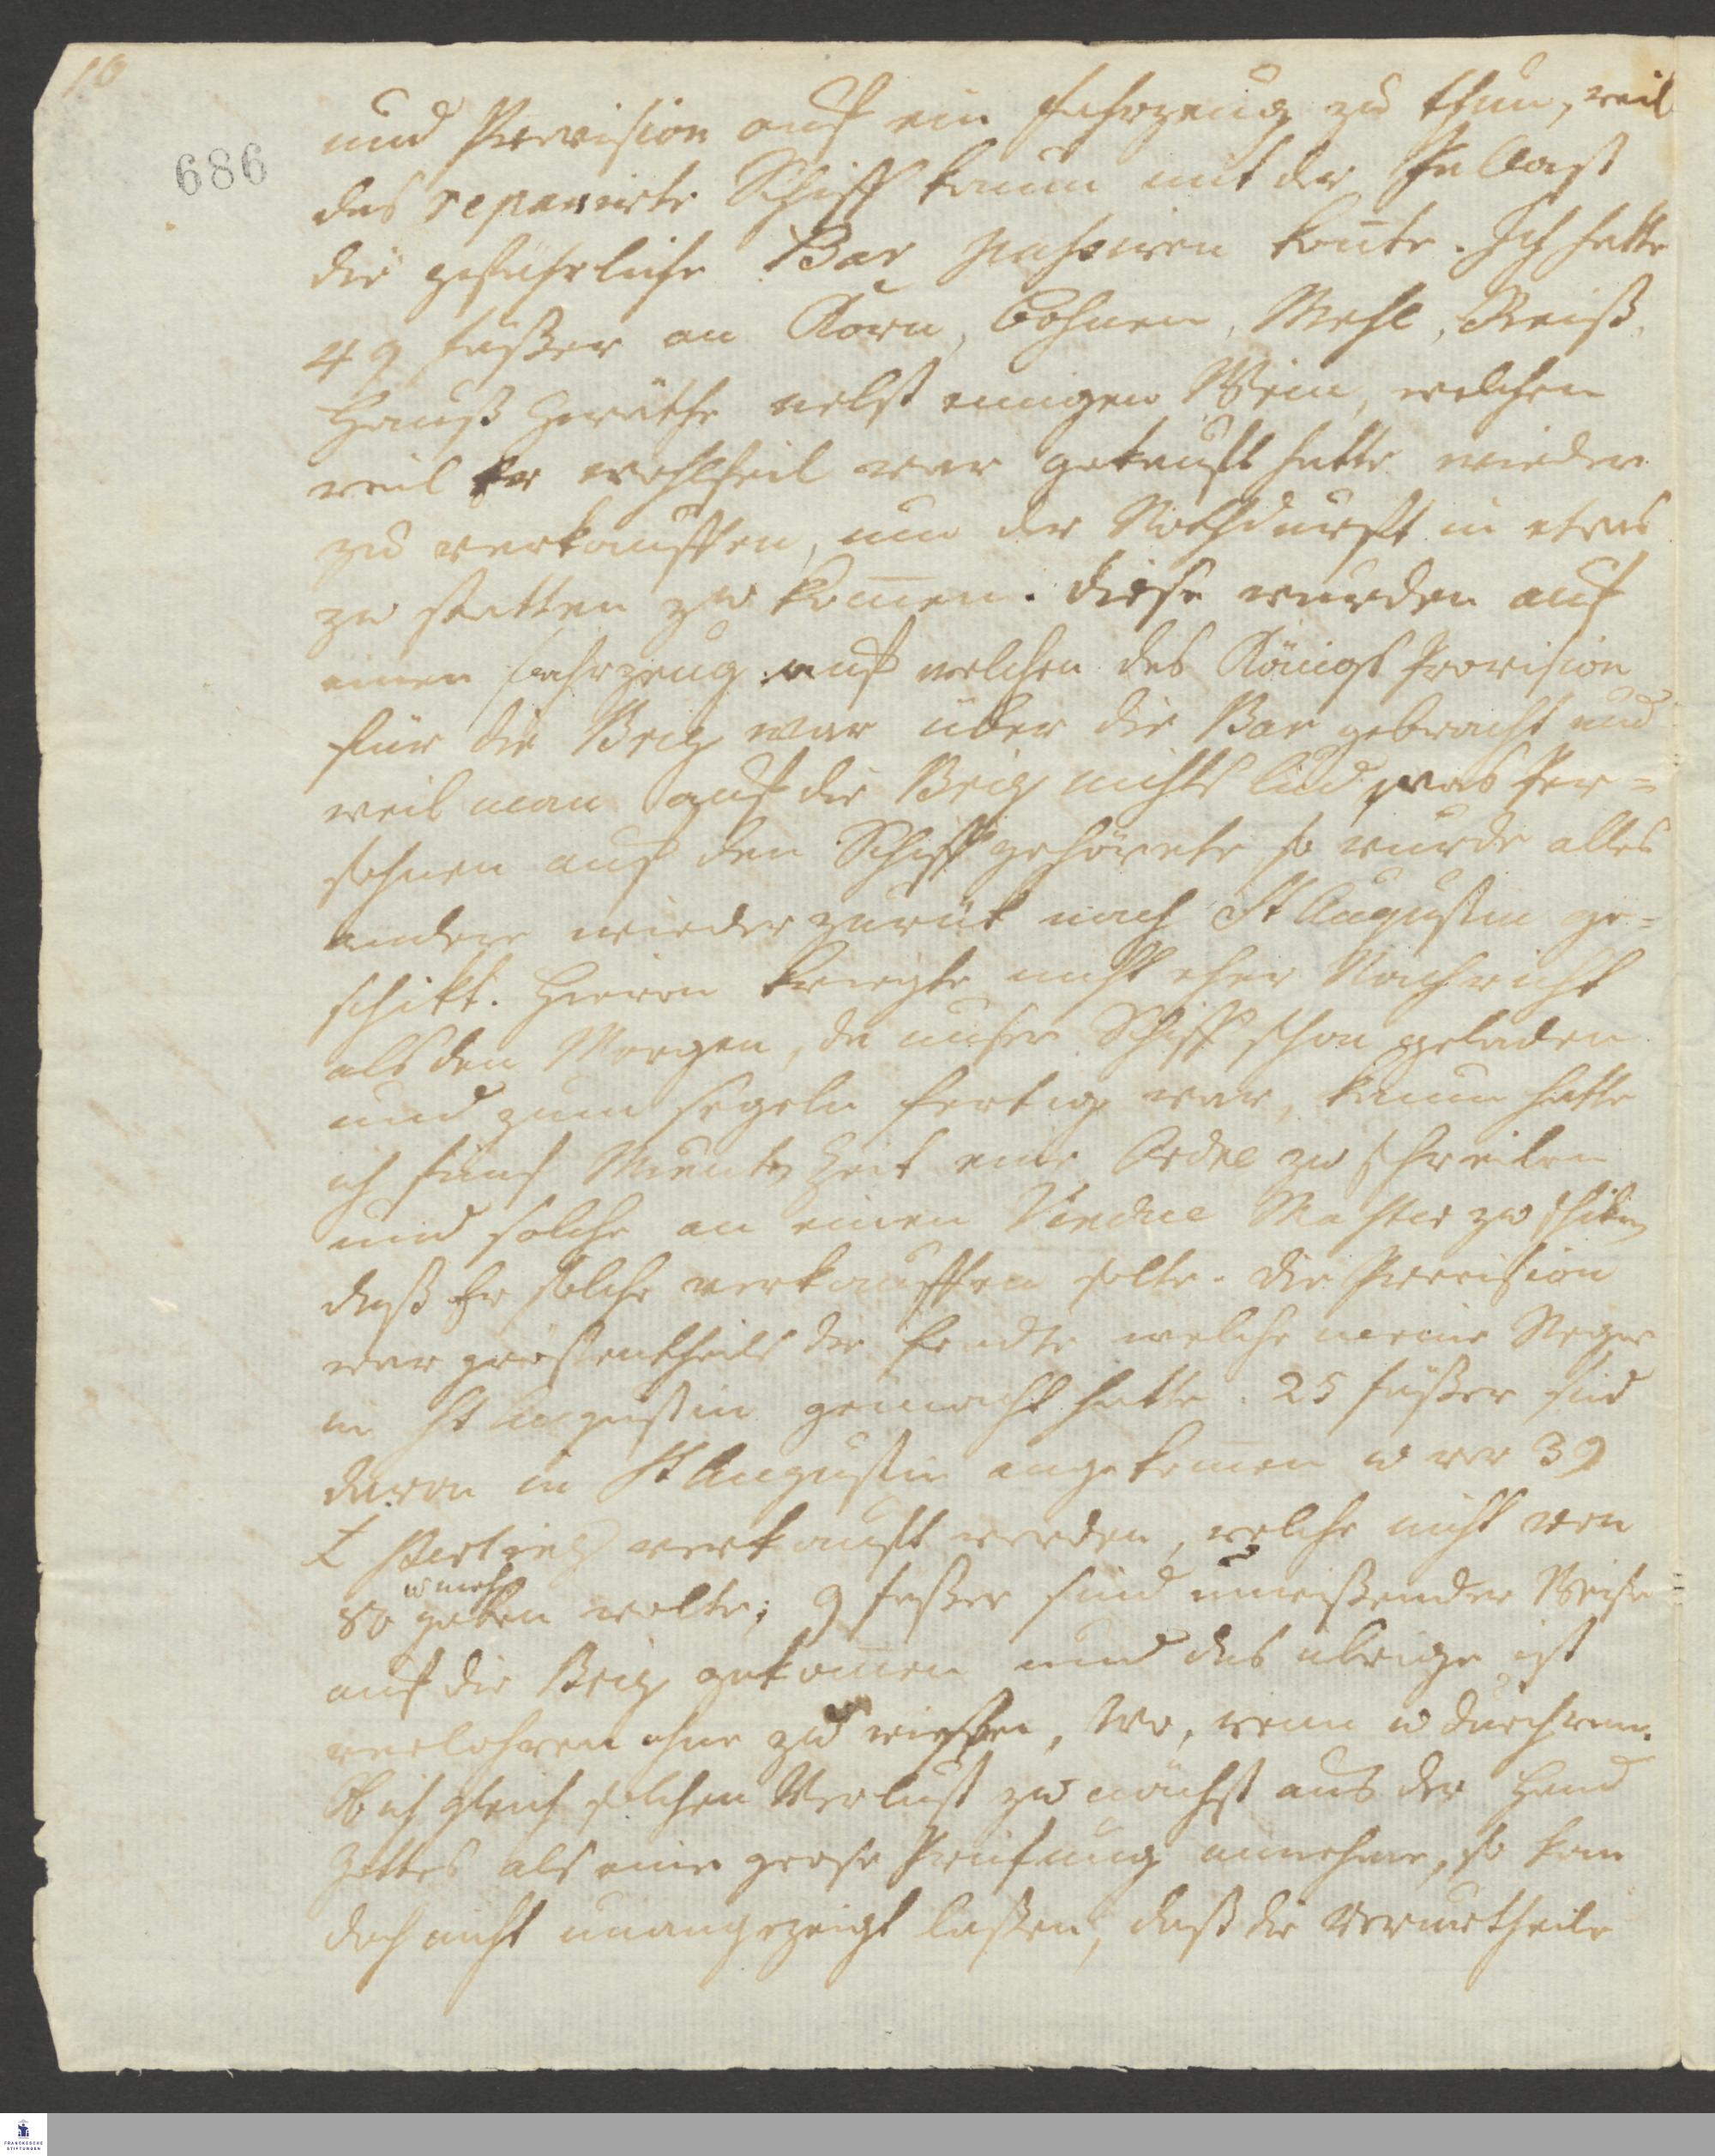 10
686
und Provision auf ein Fahrzeug zu thun, weil
das reparirte Schiff kaum mit der Ballast
die gefährliche Bar pasiren konte. Ich hatte
49 Fäßer an Korn, Bohnen, Mehl, Reiß,
Hauß Geräthe nebst einigen Wein, welchen
weil Er wohlfeil war gekauft hatte wieder
zu verkauffen, um der Nothdurft in etwas
zu statten zu komen. Diese wurden auf
einen Fahrzeug auf welchen des Königs Provision
für die Brig war über die Bar gebracht und
weil man auf die Brig nichts lud was Per=
sohnen auf den Schiff gehörete so wurde alles
andere wieder zurük nach St Augustin ge=
schikt. Hievon kriegte nicht eher Nachricht
als den Morgen, da unser Schiff schon geladen
und zum segeln fertig war, kaum hatte
ich fünf Minuten Zeit eine Order zu schreiben
und solche an einen Vendue Master zu schiken
daß Er solche verkauffen solte. Die Provision
war gröstentheils die Erndte welche meine Neger
in St Augustin gemacht hatte. 25 Fäßer sind
davon in St Augustin angekomen u vor 39
£ Sterling verkauft worden, welche nicht von
80 u mehr geben wolte; 9 Fäßer sind unwißender Weise
auf die Brig gekomen und das übrige ist
verlohren ohne zu wißen, wo, wenn u durch wem.
Ob ich gleich solchen Verlust zu nächst aus der Hand
Gottes als eine grose Prüfung annehme, so kan
doch nicht unangezeigt laßen, daß die Vorurtheile
FRANCKESCHE
STIFTUNGEN